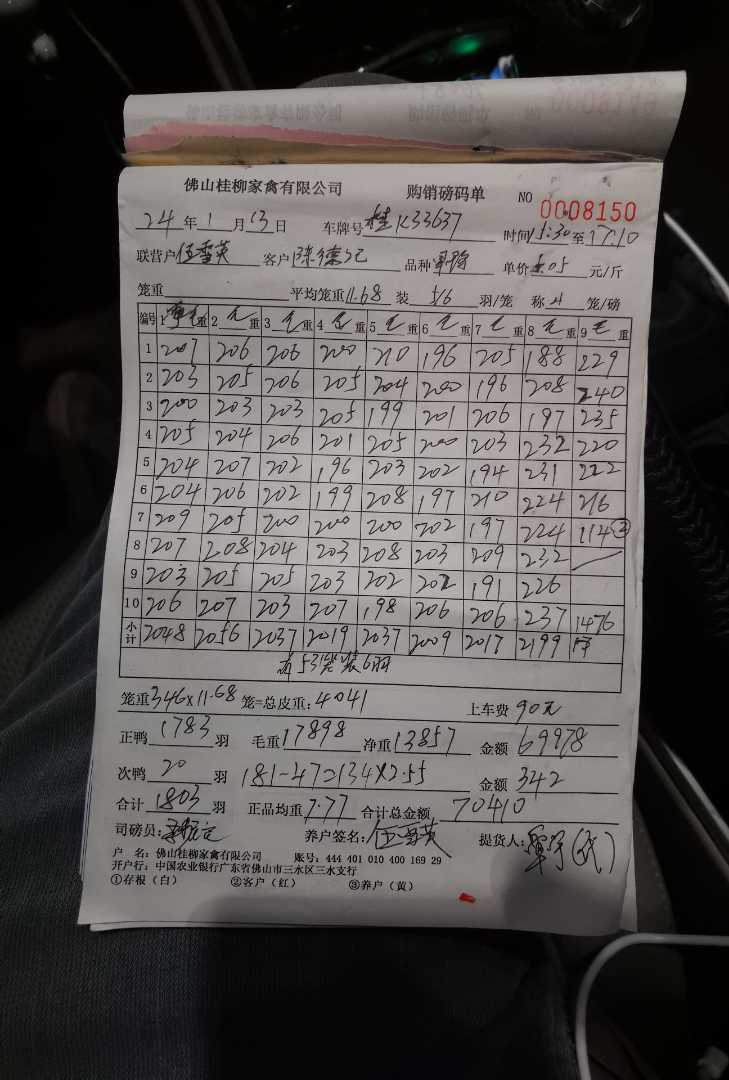 佛山桂柳家禽有限公司 购销磅码单 NO 0008150
24年1月13日 车牌号桂K33637 时间15:30至17:10
联营户伍雪英 客户陈德记 品种 单价5.05元/斤
笼重 平均笼重11.68 装5/6羽/笼 称4笼/磅
编号 1毛重 2毛重 3毛重 4毛重 5毛重 6毛重 7毛重 8毛重 9毛重
1 207 206 206 200 210 196 205 188 229
2 203 205 206 205 204 200 196 208 240
3 200 203 203 205 199 201 206 197 235
4 205 204 206 201 205 200 203 232 220
5 204 207 202 196 203 202 194 231 222
6 204 206 202 199 208 197 210 224 216
7 209 205 200 200 200 202 197 224 114②
8 207 208 204 203 208 203 209 232
9 203 205 205 203 202 202 191 226
10 206 207 203 207 198 206 206 237 1476
小计 2048 2056 2037 2019 2037 2009 2017 2199
有53笼装6羽
笼重346×11.68笼=总皮重:4041 上车费90元
正鸭1783羽 毛重17898 净重13857 金额69978
次鸭20羽 181-47=134×2.55 金额342
合计1803羽 正品均重7.77 合计总金额70410
司磅员: 养户签名:伍雪英 提货人:
户 名:佛山桂柳家禽有限公司 账号:444 401 010 400 169 29
开户行:中国农业银行广东省佛山市三水区三水支行
①存根(白) ②客户(红) ③养户(黄)